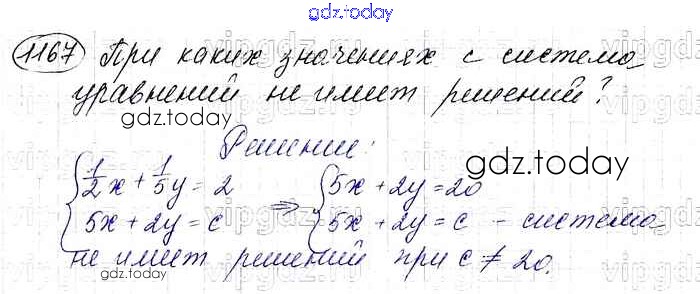 gdz.today
1167 При каких значениях с система
уравнений не имеет решений?
gdz.today
Решение:
gdz.today
{ 1/2x + 1/5y = 2 ⇒ { 5x + 2y = 20
{ 5x + 2y = c { 5x + 2y = c – система
не имеет решений при с ≠ 20.
gdz.today